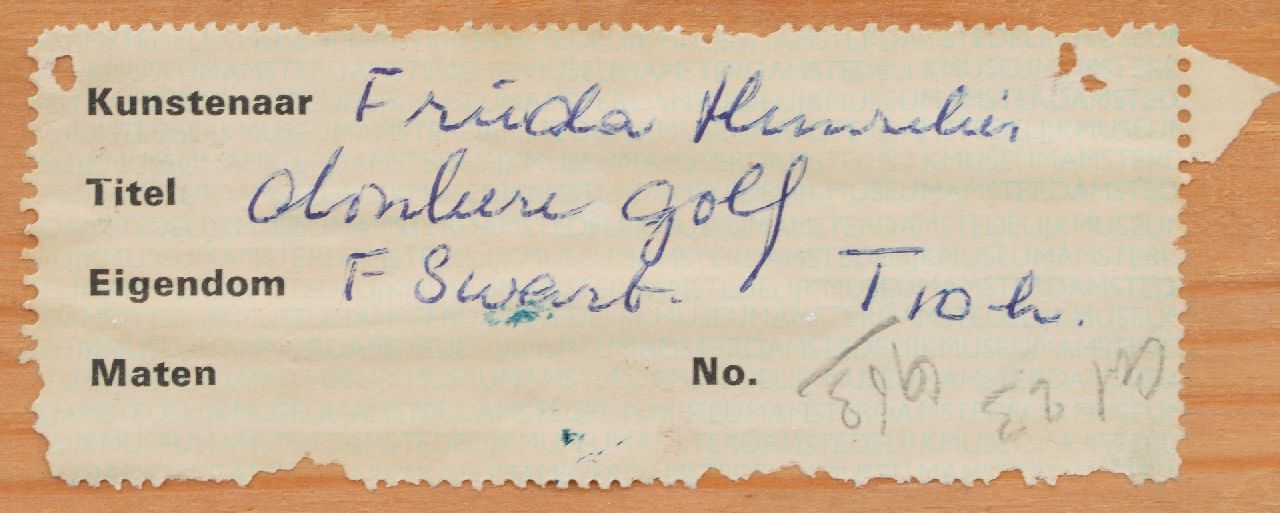 Kunstenaar Frieda Hunziker
Titel donkere golf
Eigendom F Swart.
Maten No.